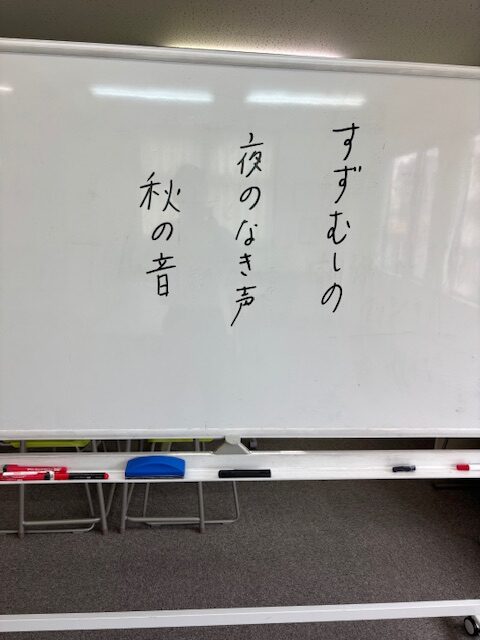 すずむしの
夜のなき声
秋の音